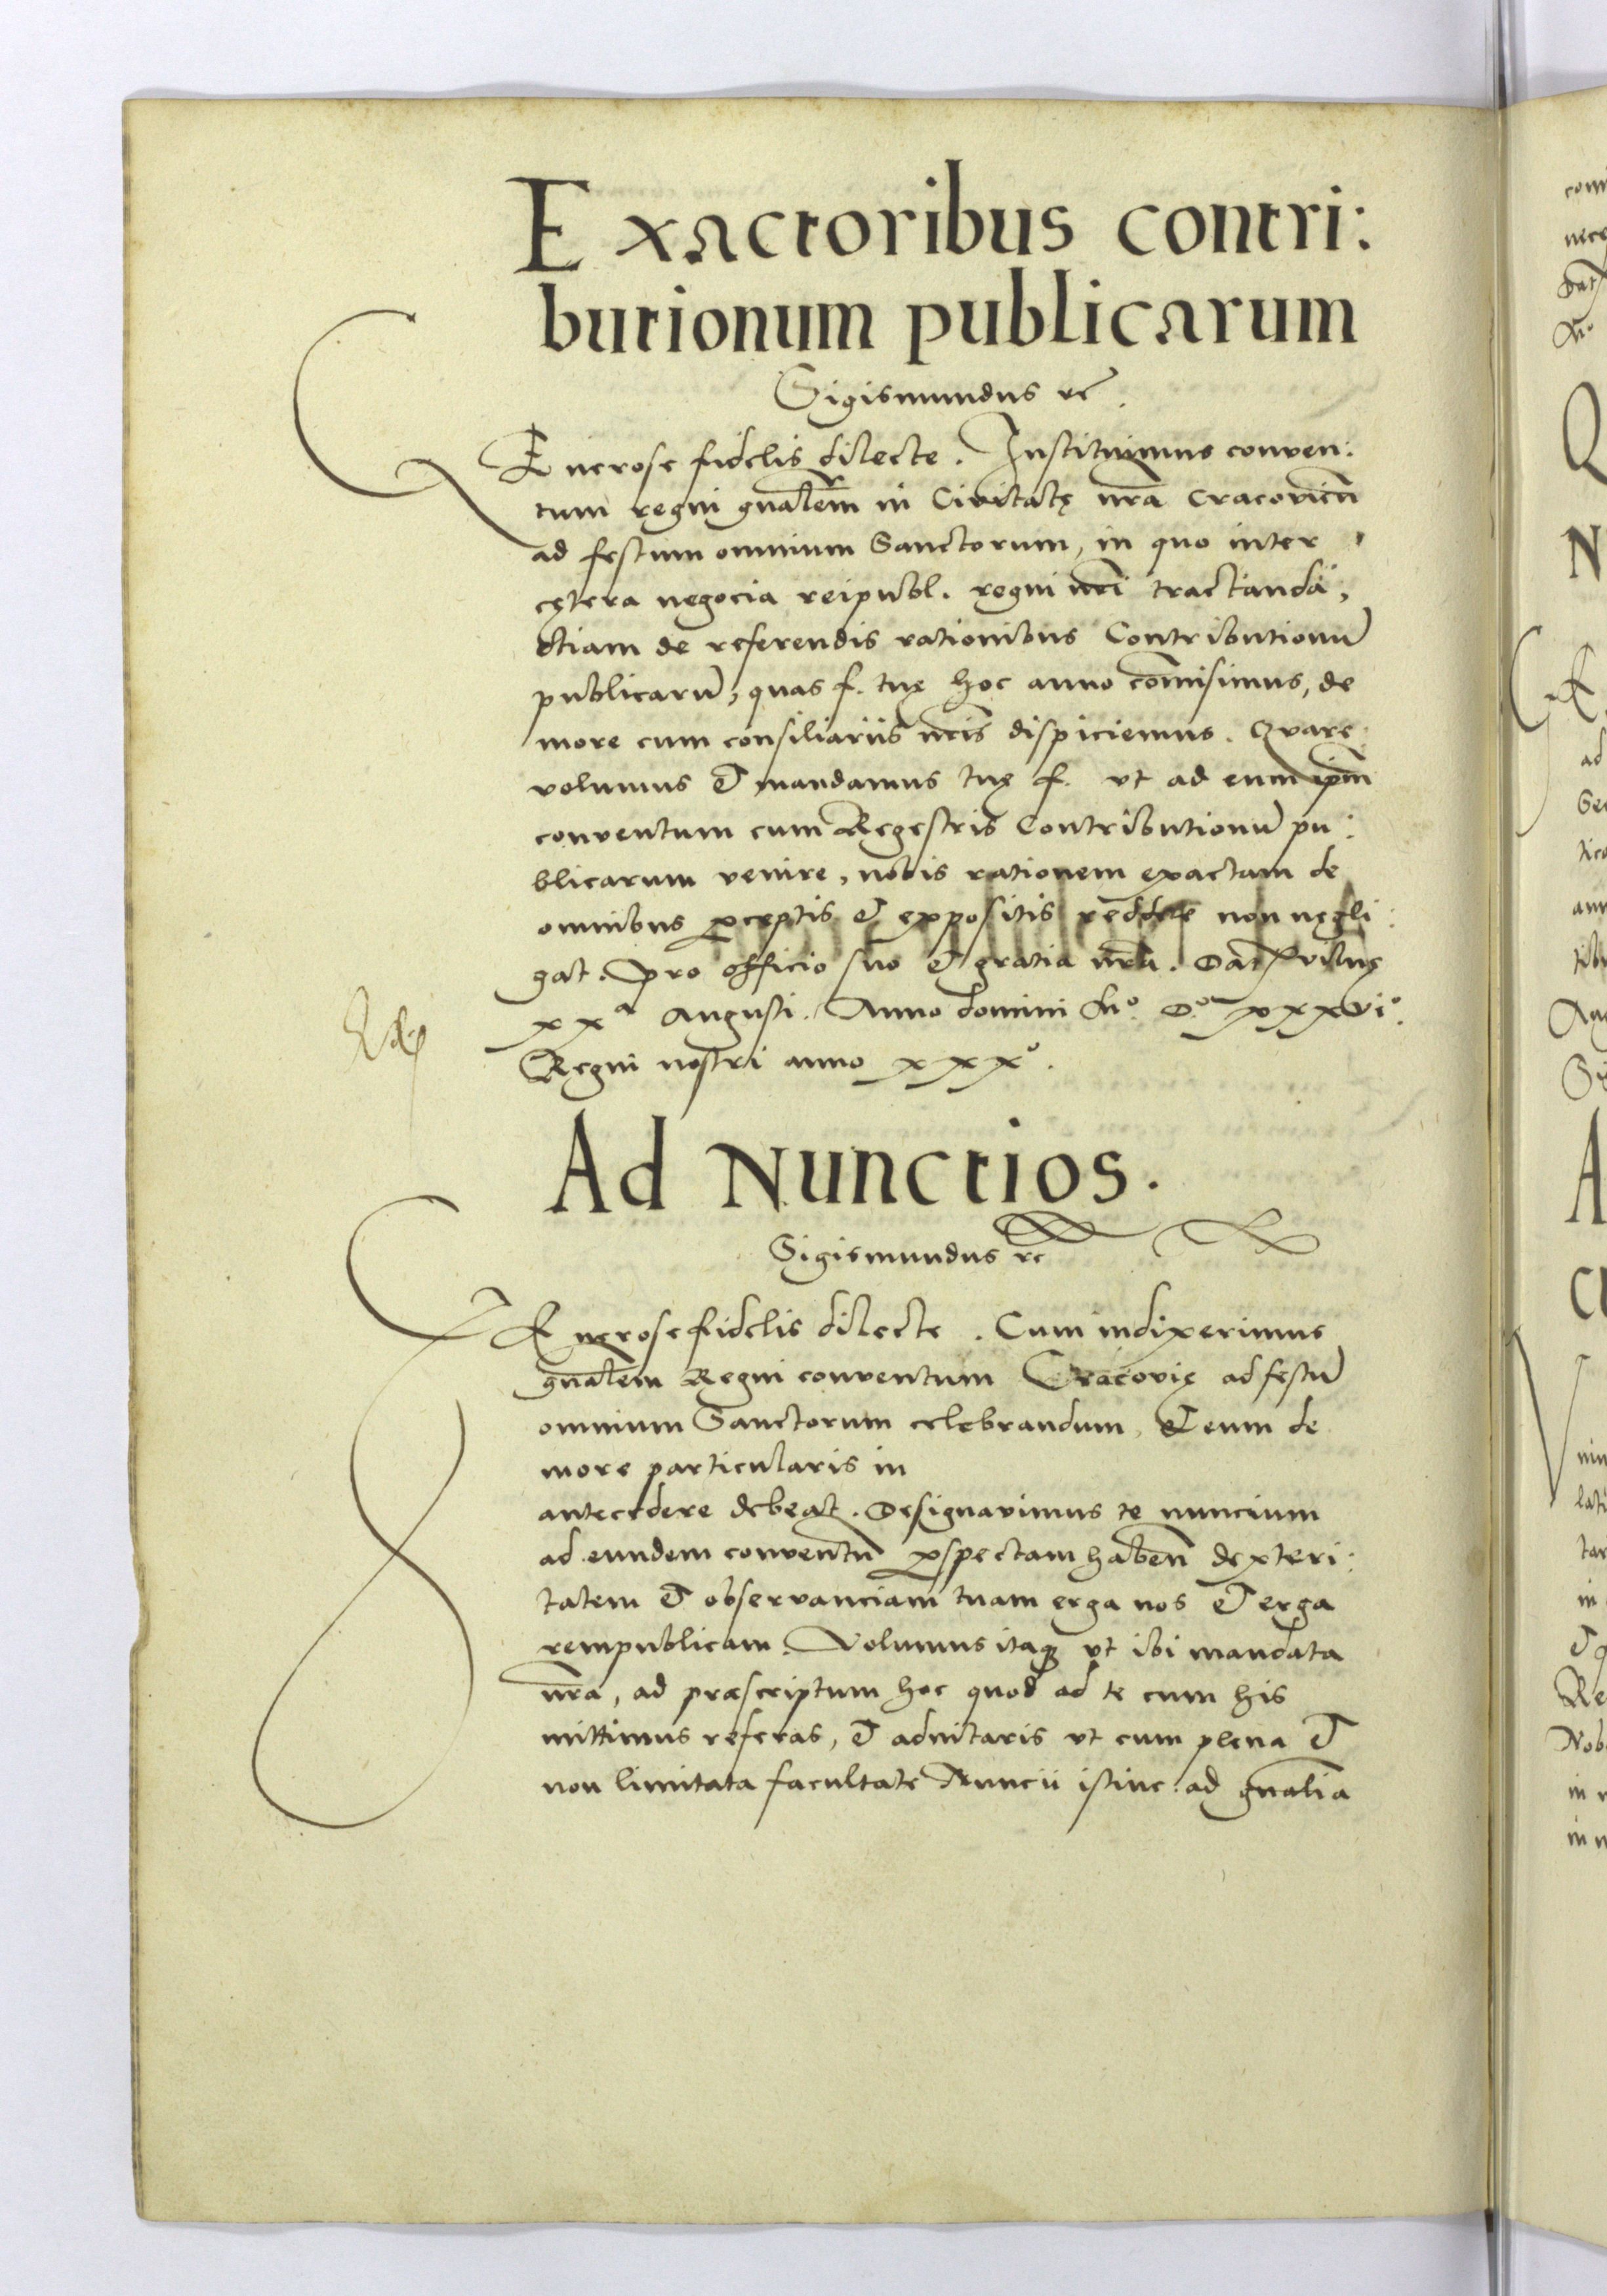 Exactoribus contri:
butionum publicarum
Sigismundus rc.
Generose fidelis dilecte. Instituimus conven:
tum regni gnalem in Civitatę nra Cracovien
ad festum omnium Sanctorum, in quo inter
cętera negocia reipubl. regni nri tractanda,
etiam de referendis rationibus Contributionu
publicaru, quas f. tuę hoc anno comisimus, de
more cum consiliariis nris dispiciemus. Quare
volumus et mandamus tuę f. ut ad eum ipm
conventum cum Regestris Contributionu pu:
blicarum venire, nobis rationem exactam de
omnibus perceptis et expositis reddere non negli:
gat. Pro officio suo et gratia nra. Dat Vilnę
xxa Augusti. Anno domini Mo. Do. xxxvio.
Regni nostri anno xxxo.
Ad Nunctios.
Sigismundus rc
Generose fidelis dilecte. Cum indixerimus
gnalem Regni conventum Cracovię ad festu
omnium Sanctorum celebrandum, Et eum de
more particularis in
antecedere debeat. Designavimus te nuncium
ad eundem conventu perspectam haben dexteri:
tatem et observanciam tuam erga nos et erga
rempublicam. Volumus itaq ut ibi mandata
nra, ad præscriptum hoc quod ad te cum his
mittimus referas, et adnitaris ut cum plena et
non limitata facultate Nuncii istinc ad gnalia